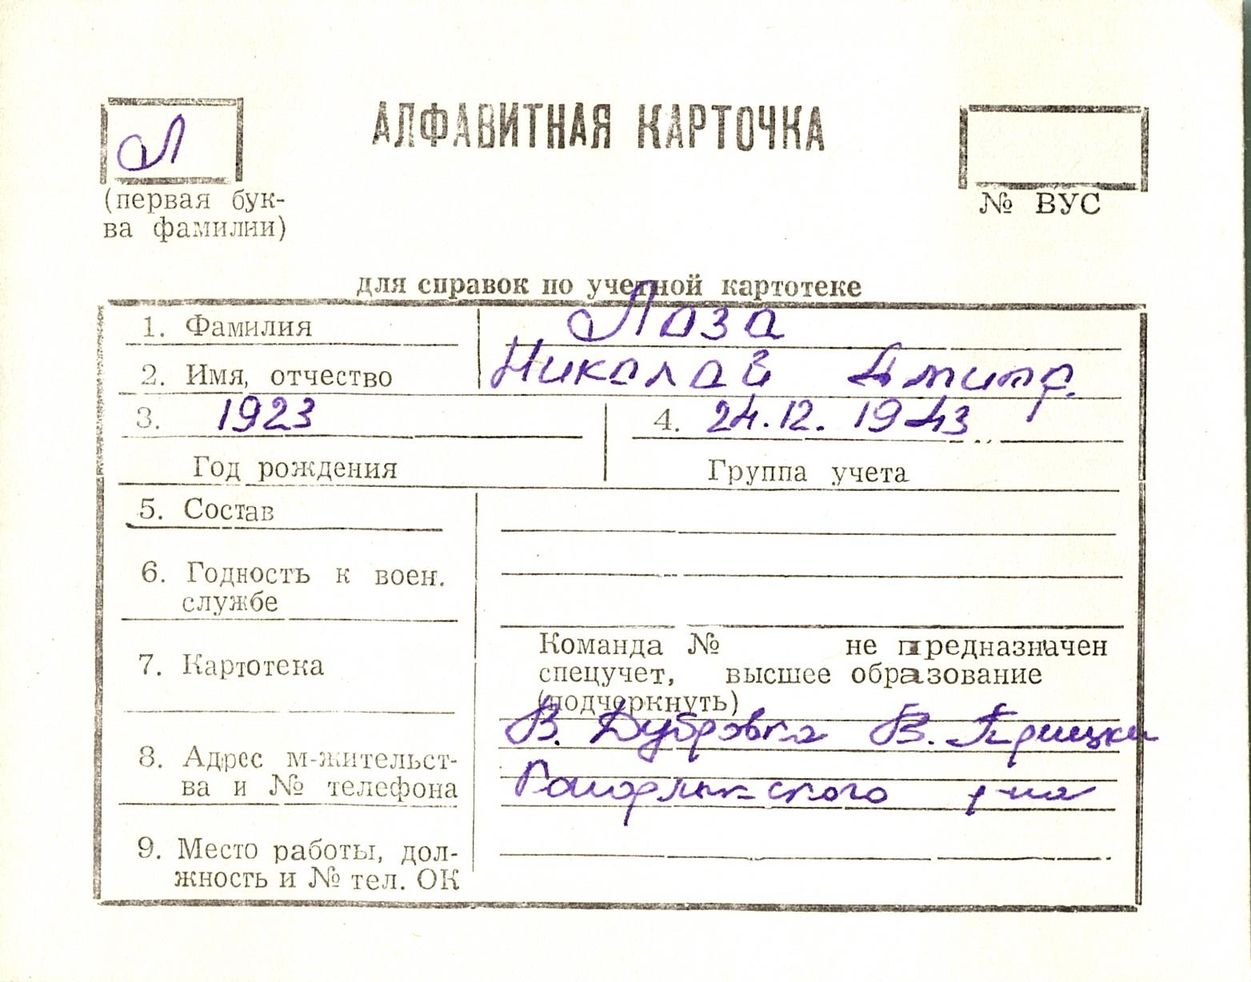 Л
АЛФАВИТНАЯ КАРТОЧКА
(первая бук-
ва фамилии)
№ ВУС
для справок по учетной картотеке
1. Фамилия Лаза
2. Имя, отчество Николай Дмитр.
3. 1923 4. 24.12. 1943
Год рождения Группа учета
5. Состав
6. Годность к воен.
службе
7. Картотека
Команда № не предназначен
спецучет, высшее образование
(подчеркнуть)
В. Дубровка В.
8. Адрес м-жительст-
ва и № телефона
р-на
9. Место работы, дол-
жность и № тел. ОК